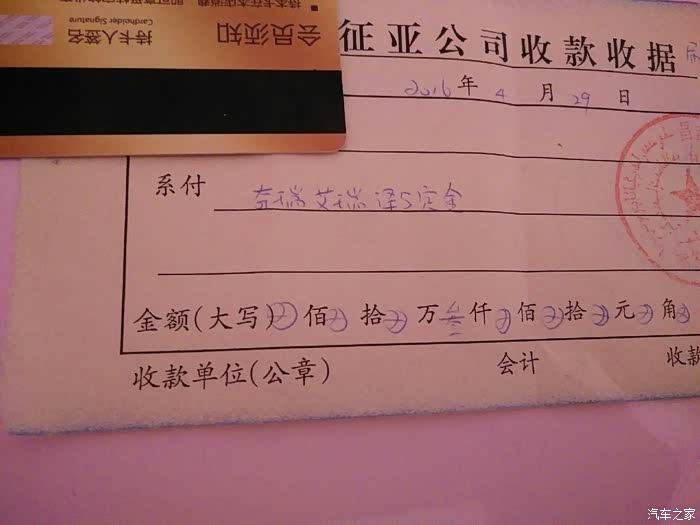 持卡人签名
Cardholder Signature
会员须知
征亚公司收款收据
2016年4月29日
系付 奇瑞艾瑞泽5定金
金额(大写)⊗佰⊗拾⊗万叁仟⊗佰⊗拾⊗元⊗角
收款单位(公章) 会计 收款
汽车之家